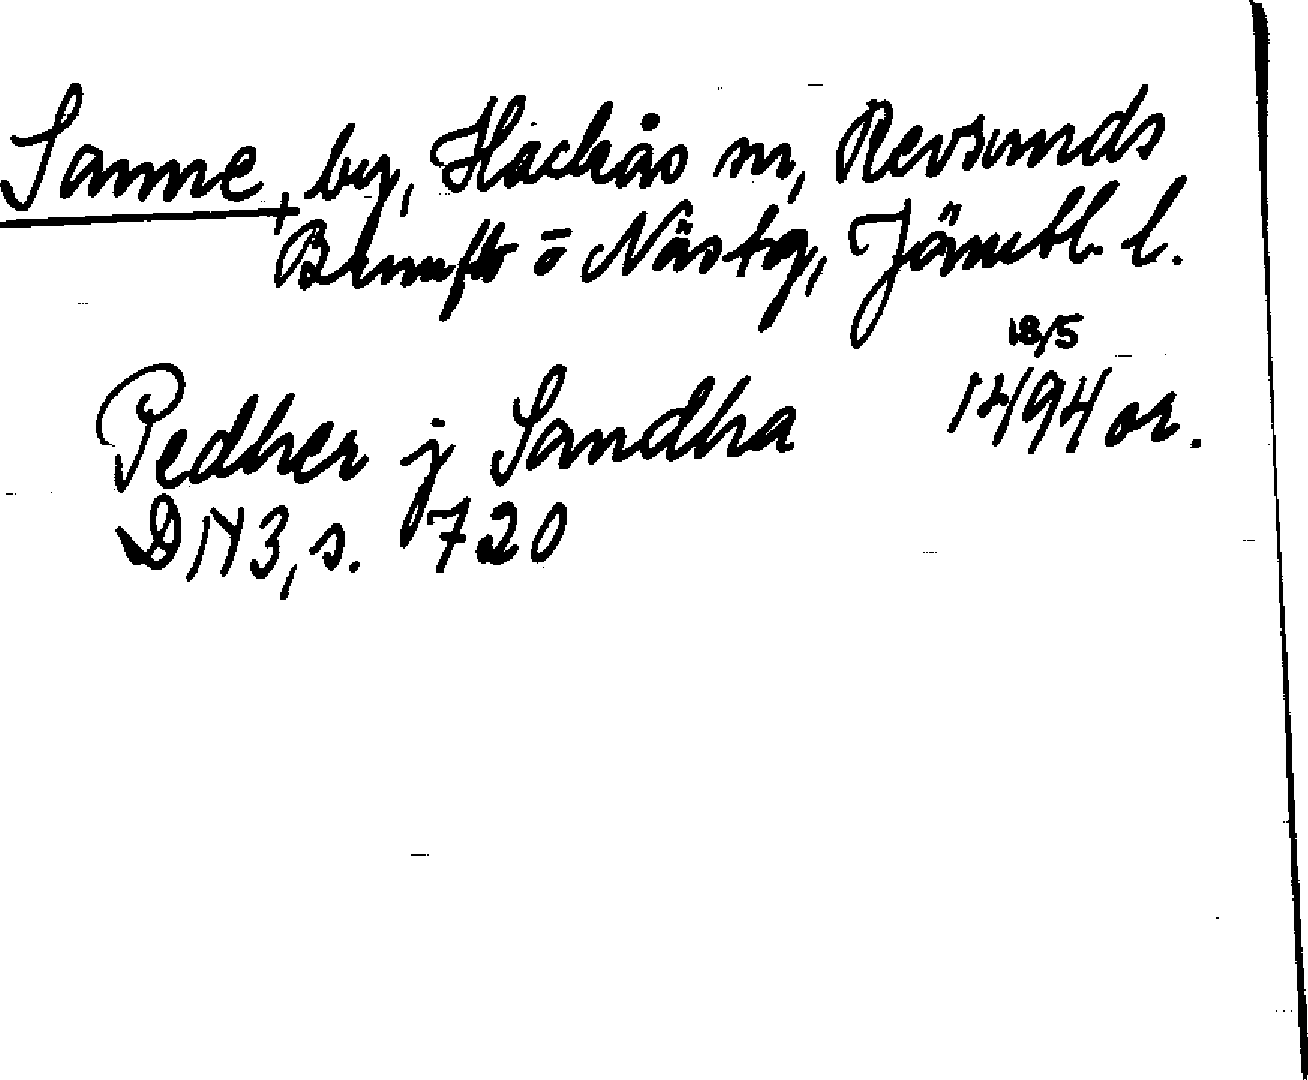 Sanne, by, Hackås sn, Revsunds
Brunflo o Näs tg, Jämtl. l.
18/5
Pedher j Sandha 1494 or.
DN 3, s. 720